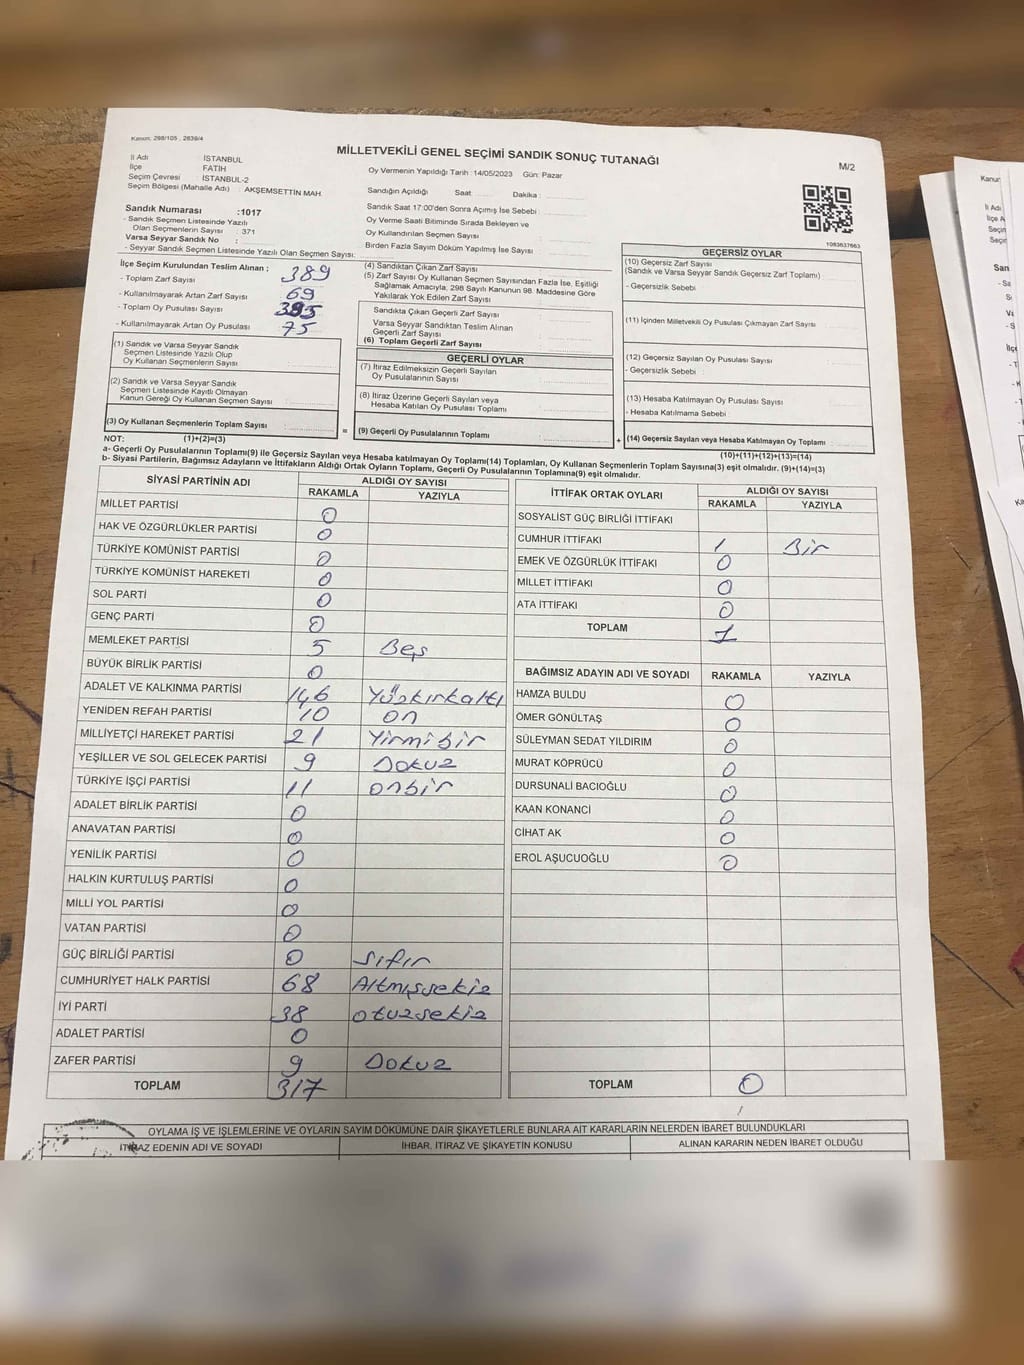 Kanun: 298/105 , 2839/4
MİLLETVEKİLİ GENEL SEÇİMİ SANDIK SONUÇ TUTANAĞI
M/2
İl Adı İSTANBUL
İlçe FATİH
Seçim Çevresi İSTANBUL-2
Seçim Bölgesi (Mahalle Adı) : AKŞEMSETTİN MAH.
Oy Vermenin Yapıldığı Tarih : 14/05/2023 Gün: Pazar
Sandığın Açıldığı Saat Dakika :
Sandık Saat 17:00'den Sonra Açılmış İse Sebebi :
Oy Verme Saati Bitiminde Sırada Bekleyen ve
Oy Kullandırılan Seçmen Sayısı
Birden Fazla Sayım Döküm Yapılmış İse Sayısı
Sandık Numarası :1017
- Sandık Seçmen Listesinde Yazılı
Olan Seçmenlerin Sayısı : 371
Varsa Seyyar Sandık No :
- Seyyar Sandık Seçmen Listesinde Yazılı Olan Seçmen Sayısı:
1083637663
İlçe Seçim Kurulundan Teslim Alınan ;
- Toplam Zarf Sayısı 389
- Kullanılmayarak Artan Zarf Sayısı 69
- Toplam Oy Pusulası Sayısı 395
- Kullanılmayarak Artan Oy Pusulası 75
(1) Sandık ve Varsa Seyyar Sandık
Seçmen Listesinde Yazılı Olup
Oy Kullanan Seçmenlerin Sayısı
(2) Sandık ve Varsa Seyyar Sandık
Seçmen Listesinde Kayıtlı Olmayan
Kanun Gereği Oy Kullanan Seçmen Sayısı :
(3) Oy Kullanan Seçmenlerin Toplam Sayısı :
(4) Sandıktan Çıkan Zarf Sayısı
(5) Zarf Sayısı Oy Kullanan Seçmen Sayısından Fazla İse, Eşitliği
Sağlamak Amacıyla, 298 Sayılı Kanunun 98. Maddesine Göre
Yakılarak Yok Edilen Zarf Sayısı
Sandıkta Çıkan Geçerli Zarf Sayısı
Varsa Seyyar Sandıktan Teslim Alınan
Geçerli Zarf Sayısı
(6) Toplam Geçerli Zarf Sayısı
GEÇERLİ OYLAR
(7) İtiraz Edilmeksizin Geçerli Sayılan
Oy Pusulalarının Sayısı
(8) İtiraz Üzerine Geçerli Sayılan veya
Hesaba Katılan Oy Pusulası Toplamı
= (9) Geçerli Oy Pusulalarının Toplamı
GEÇERSİZ OYLAR
(10) Geçersiz Zarf Sayısı
(Sandık ve Varsa Seyyar Sandık Geçersiz Zarf Toplamı)
- Geçersizlik Sebebi :
(11) İçinden Milletvekili Oy Pusulası Çıkmayan Zarf Sayısı
(12) Geçersiz Sayılan Oy Pusulası Sayısı
- Geçersizlik Sebebi :
(13) Hesaba Katılmayan Oy Pusulası Sayısı
- Hesaba Katılmama Sebebi :
+ (14) Geçersiz Sayılan veya Hesaba Katılmayan Oy Toplamı :
NOT: (1)+(2)=(3)
(10)+(11)+(12)+(13)=(14)
a- Geçerli Oy Pusulalarının Toplamı(9) ile Geçersiz Sayılan veya Hesaba katılmayan Oy Toplamı(14) Toplamları, Oy Kullanan Seçmenlerin Toplam Sayısına(3) eşit olmalıdır. (9)+(14)=(3)
b- Siyasi Partilerin, Bağımsız Adayların ve İttifakların Aldığı Ortak Oyların Toplamı, Geçerli Oy Pusulalarının Toplamına(9) eşit olmalıdır.
SİYASİ PARTİNİN ADI ALDIĞI OY SAYISI
RAKAMLA YAZIYLA
MİLLET PARTİSİ 0
HAK VE ÖZGÜRLÜKLER PARTİSİ 0
TÜRKİYE KOMÜNİST PARTİSİ 0
TÜRKİYE KOMÜNİST HAREKETİ 0
SOL PARTİ 0
GENÇ PARTİ 0
MEMLEKET PARTİSİ 5 Beş
BÜYÜK BİRLİK PARTİSİ 0
ADALET VE KALKINMA PARTİSİ 146 Yüzkırkaltı
YENİDEN REFAH PARTİSİ 10 on
MİLLİYETÇİ HAREKET PARTİSİ 21 Yirmibir
YEŞİLLER VE SOL GELECEK PARTİSİ 9 Dokuz
TÜRKİYE İŞÇİ PARTİSİ 11 onbir
ADALET BİRLİK PARTİSİ 0
ANAVATAN PARTİSİ 0
YENİLİK PARTİSİ 0
HALKIN KURTULUŞ PARTİSİ 0
MİLLİ YOL PARTİSİ 0
VATAN PARTİSİ 0
GÜÇ BİRLİĞİ PARTİSİ 0 Sıfır
CUMHURİYET HALK PARTİSİ 68 Altmışsekiz
İYİ PARTİ 38 otuzsekiz
ADALET PARTİSİ 0
ZAFER PARTİSİ 9 Dokuz
TOPLAM 317
İTTİFAK ORTAK OYLARI ALDIĞI OY SAYISI
RAKAMLA YAZIYLA
SOSYALİST GÜÇ BİRLİĞİ İTTİFAKI
CUMHUR İTTİFAKI 1 Bir
EMEK VE ÖZGÜRLÜK İTTİFAKI 0
MİLLET İTTİFAKI 0
ATA İTTİFAKI 0
TOPLAM 1
BAĞIMSIZ ADAYIN ADI VE SOYADI RAKAMLA YAZIYLA
HAMZA BULDU 0
ÖMER GÖNÜLTAŞ 0
SÜLEYMAN SEDAT YILDIRIM 0
MURAT KÖPRÜCÜ 0
DURSUNALİ BACIOĞLU 0
KAAN KONANCİ 0
CİHAT AK 0
EROL AŞUCUOĞLU 0
TOPLAM 0
OYLAMA İŞ VE İŞLEMLERİNE VE OYLARIN SAYIM DÖKÜMÜNE DAİR ŞİKAYETLERLE BUNLARA AİT KARARLARIN NELERDEN İBARET BULUNDUKLARI
İTİRAZ EDENİN ADI VE SOYADI İHBAR, İTİRAZ VE ŞİKAYETİN KONUSU ALINAN KARARIN NEDEN İBARET OLDUĞU